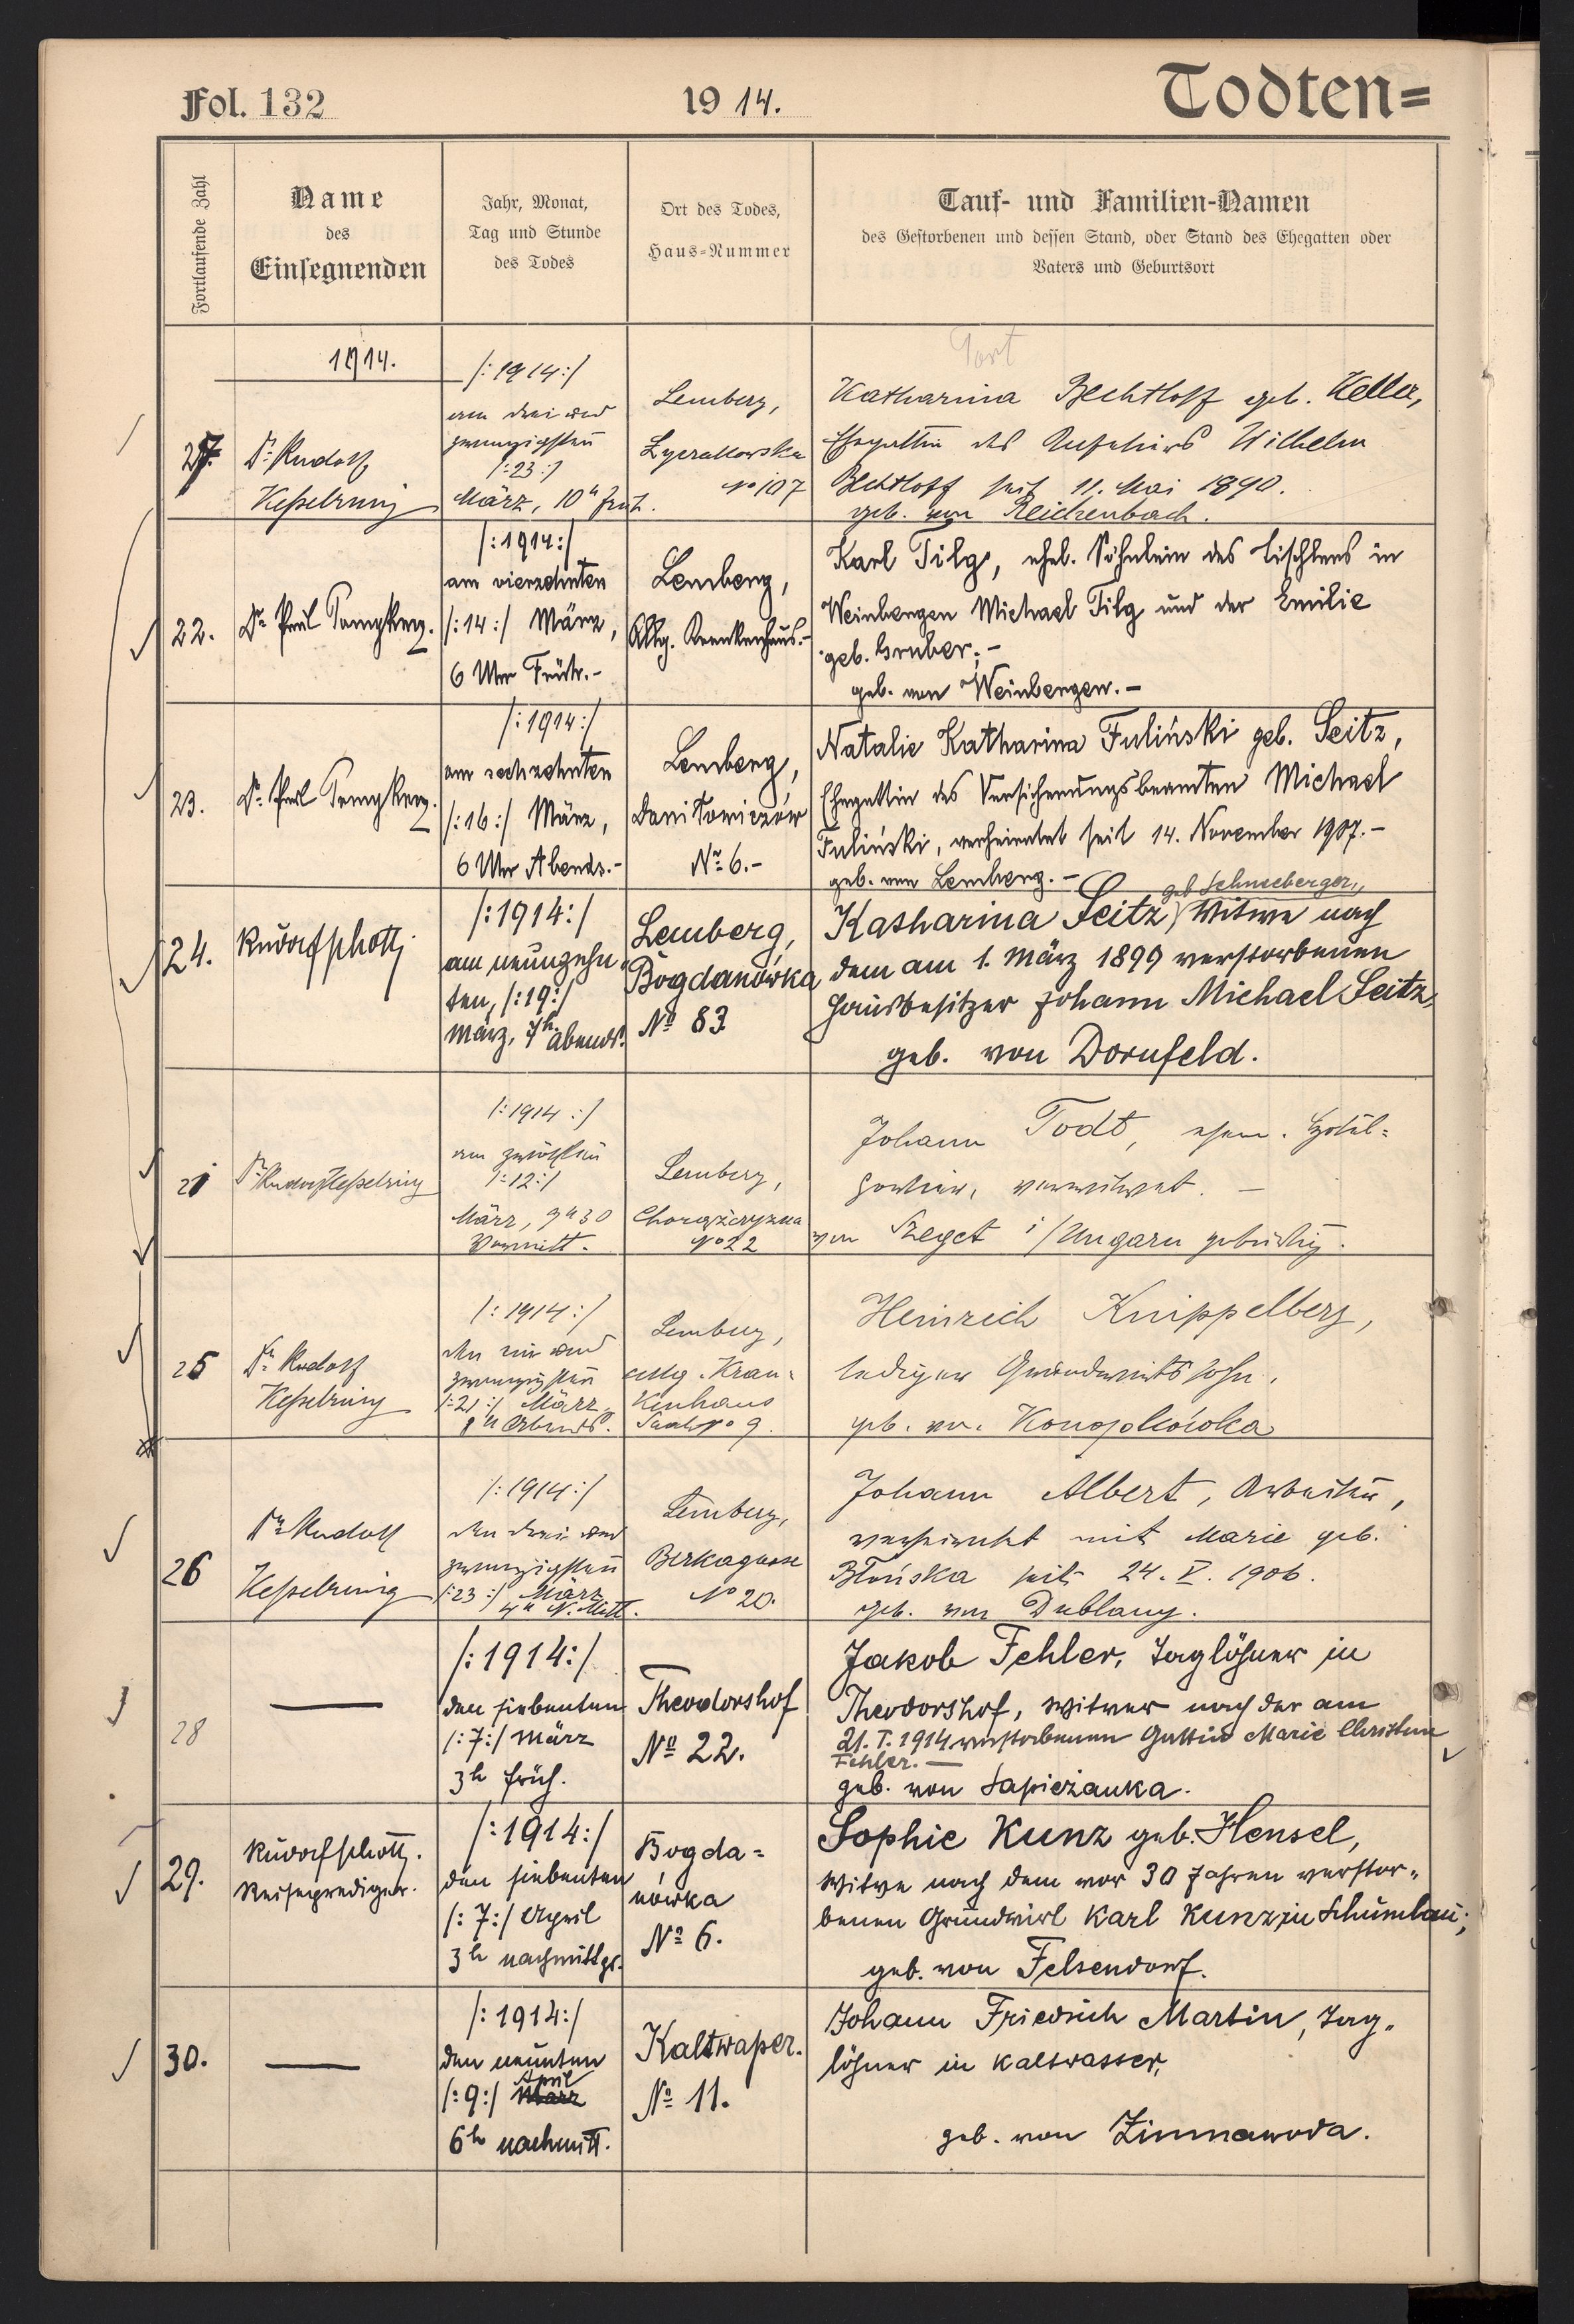 Fol. 132
1914.
Todten=
Fortlaufende Zahl
Name
des
Einsegnenden
Jahr, Monat,
Tag und Stunde
des Todes
Ort des Todes,
Haus-Nummer
Tauf- und Familien-Namen
des Gestorbenen und dessen Stand, oder Stand des Ehegatten oder
Vaters und Geburtsort
1914.
27.
Dr. Rudolf
Keßelring
/:1914:/
den drei und
zwanzigsten
/:23:/
März, 10h früh.
Lemberg,
Łyczakowska
No 107
Katharina Bechtloff geb. Keller,
Ehegattin des Wilhelm
Bechtloff seit 11. Mai 1890.
geb. von Reichenbach.
22.
Dr. Paul
/:1914:/
am vierzehnten
/:14:/ März,
6 Uhr Früh.-
Lemberg,
Allg. Krankenhaus.-
Karl Filg, ehel. Söhnlein des Tischlers in
Weinbergen Michael Filg und der Emilie
geb. Gruber.-
geb. von Weinbergen.-
23.
Dr. Paul
/:1914:/
am sechzehnten
/:16:/ März,
6 Uhr Abends.-
Lemberg,
Daniłowiczów
Nr. 6.-
Natalie Katharina Fuliński geb. Seitz,
Ehegattin des Versicherungsbeamten Michael
Fuliński, verheiratet seit 14. November 1907.-
geb. von Lemberg.-
24.
Rudolf Schott
/:1914:/
am neunzehn
ten, /:19:/
März, 7h abends.
Lemberg,
Bogdanówka
No 83
geb Schneeberger,
Katharina Seitz, Witwe nach
dem am 1. März 1899 verstorbenen
Hausbesitzer Johann Michael Seitz,
geb. von Dornfeld.
Dr. Rudolf Keßelring
/:1914:/
am zwölften
/:12:/
März, 9h 30
Vormitt.
Lemberg,
Chorążczyzna
No 22
Johann Todt, ehem. Hotel=
portier, verwitwet. —
von Szeget i/Ungarn gebürtig.
25
Dr. Rudolf
Keßelring
/:1914:/
den ein und
zwanzigsten
/:21:/ März,
8h Abends.
Lemberg,
allg. Kran=
kenhaus
Saal No 9.
Heinrich Knippelberg,
lediger Grundwirtssohn,
geb. von Konopkówka
26
Dr. Rudolf
Keßelring
/:1914:/
den drei und
zwanzigsten
/:23:/ März
4h N. Mitt.
Lemberg,
Berkagasse
No 20.
Johann Albert, Arbeiter,
verheiratet mit Marie geb.
Błońska seit 24. V. 1906.
geb. von Dublany.
28
—
/:1914:/
den siebenten
/:7:/ März
3h früh.
Theodorshof
No 22.
Jakob Fehler, Taglöhner in
Theodorshof, Witwer nach der am
21. I. 1914 verstorbenen Gattin Marie Christine
Fehler.—
geb. von Sapieżanka.
29.
Rudolf Schott,
Reiseprediger.
/:1914:/
den siebenten
/:7:/ April
3h nachmittgs.
Bogda=
nówka
No 6.
Sophie Kunz geb. Hensel,
Witwe nach dem vor 30 Jahren verstor=
benen Grundwirt Karl Kunz in Schumlau;
geb. von Felsendorf.
30.
—
/:1914:/
den neunten
April
/:9:/ März
6h nachmitt.
Kaltwaßer.
No 11.
Johann Friedrich Martin, Tag=
löhner in Kaltwasser,
geb. von Zimnawoda.